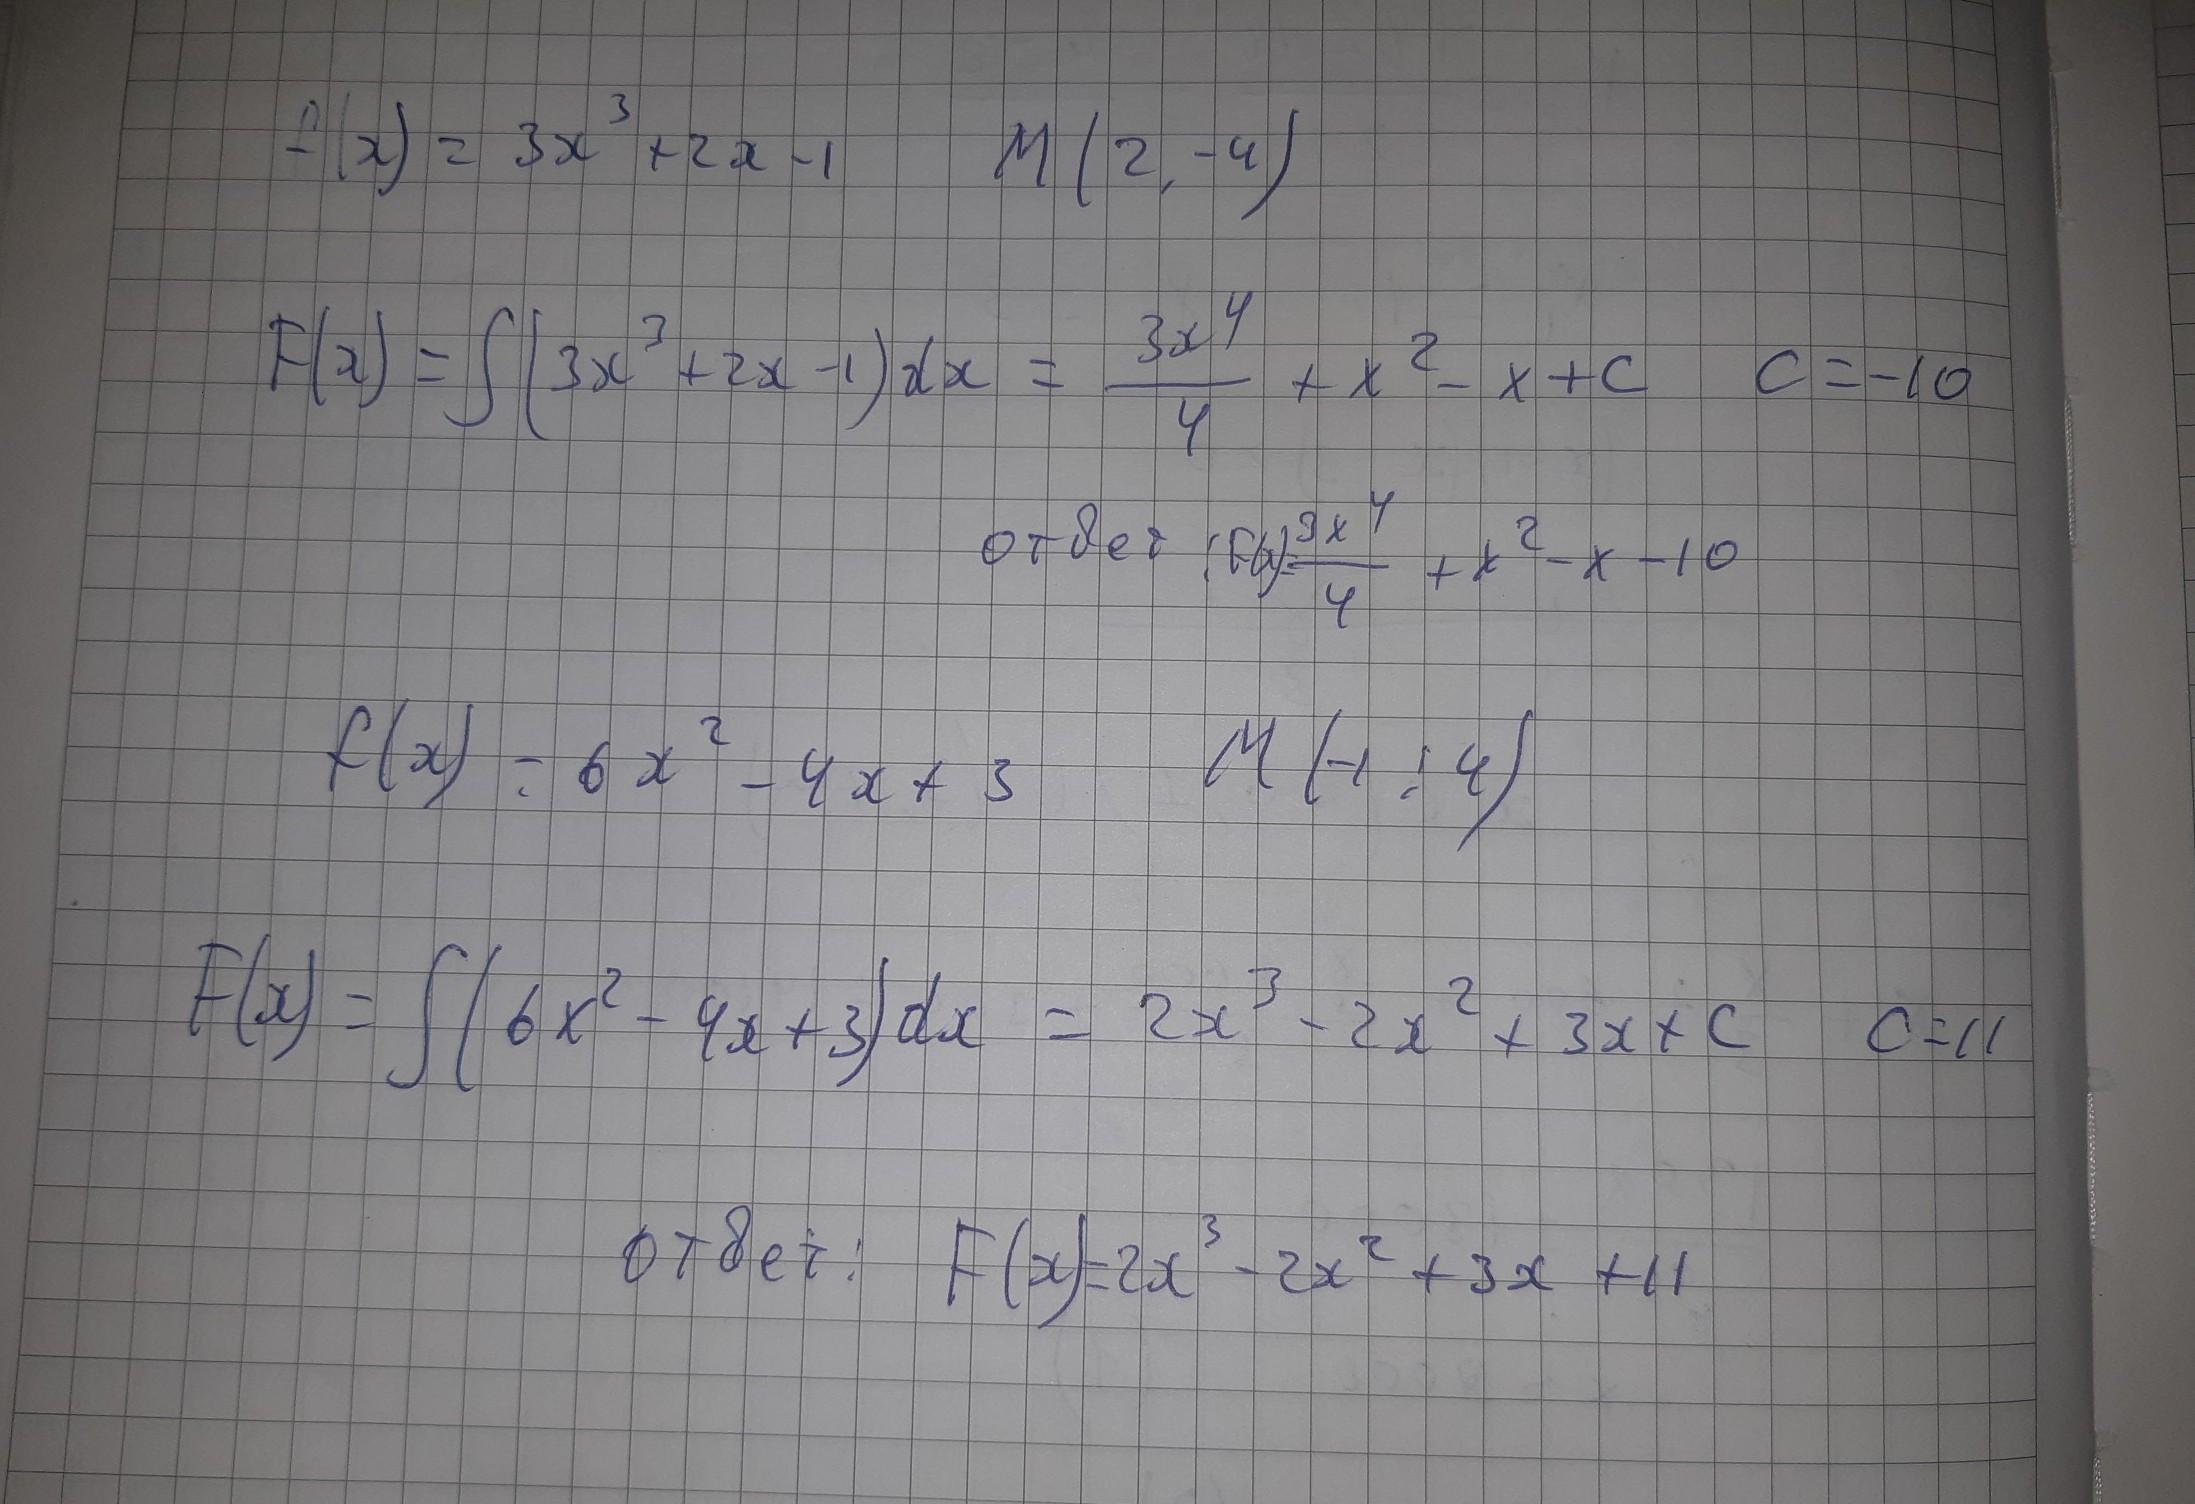 f(x) = 3x³ + 2x - 1 M(2, -4)
F(x) = ∫(3x³ + 2x - 1)dx = 3x⁴/4 + x² - x + C C = -10
ответ: F(x) = 3x⁴/4 + x² - x - 10
f(x) = 6x² - 4x + 3 M(-1; 4)
F(x) = ∫(6x² - 4x + 3)dx = 2x³ - 2x² + 3x + C C = 11
ответ: F(x) = 2x³ - 2x² + 3x + 11